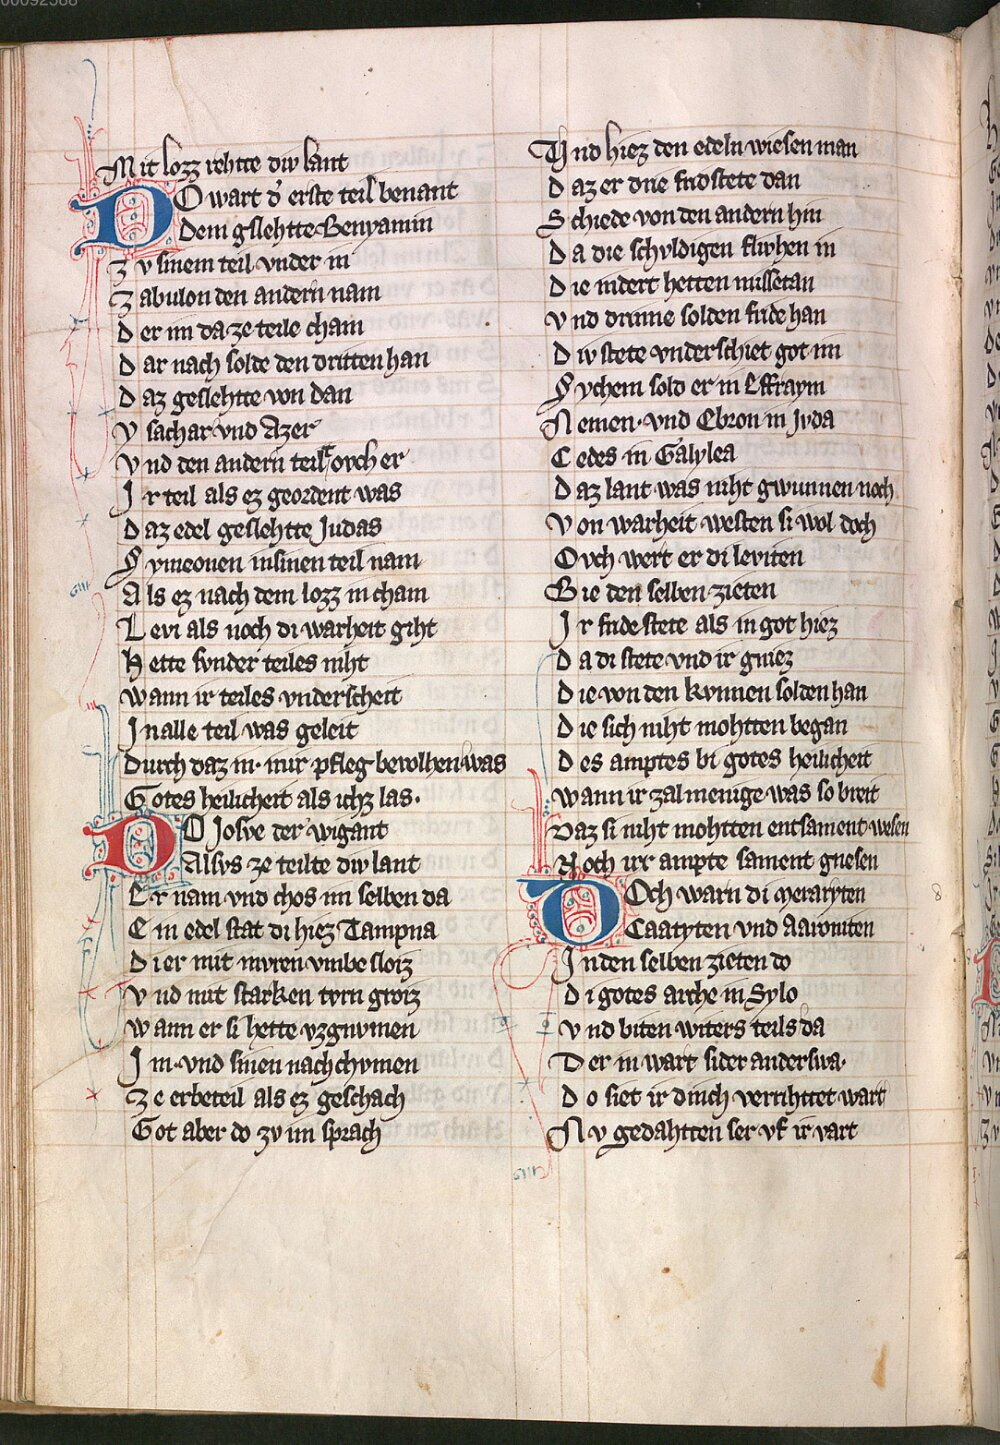 00092588
Mit lozz rehtte diw lant
DO wart d' erste teil benant
Dem gslehtte Benyamin
Zv sinem teil vnder in
Zabulon den andern nam
Der im da ze teile cham
Dar nach solde den dritten han
Daz geslehtte von dan
Ysachar vnd Azer
Vnd den andern teil ovch er
Ir teil als ez geordent was
Daz edel geslehtte Judas
Symeonen in sinen teil nam
Als ez nach dem lozz in cham
Levi als noch di warheit giht
Hette svnder teiles niht
wann ir teiles vnderscheit
In alle teil was geleit
Durch daz in· mir pfleg bevolhen was
Gotes heilicheit als ichz las·
DO Josve der wigant
Alsvs ze teilte diw lant
Er nam vnd chos im selben da
Ein edel stat di hiez Tampna
Di er mit mvren vmbe sloiz
Vnd mit starken tvrn groiz
wann er si hette vzgnvmen
Im· vnd sinen nachchymen
Ze erbeteil als ez geschach
Got aber do zv im sprach
Vnd hiez den edeln wiesen man
Daz er drie fridstete dan
Schiede von den andern hin
Da die schvldigen fluhen in
Die indert hetten missetan
Vnd drinne solden fride han
Diw stete vnderschiet got im
Sychem sold er in Effraym
Nemen· vnd Ebron in Jvda
Cedes in Galylea
Daz lant was niht gwunnen noch
Von warheit westen si wol doch
Ovch wert er di leviten
Bie den selben zieten
Ir fride stete als in got hiez
Da di stete vnd ir gniez
Die von den kvnnen solden han
Die sich niht mohtten began
Des amptes bi gotes heilicheit
wann ir zal menige was so breit
Daz si niht mohtten entsament wesen
Noch irr ampte sament gnesen
DOch warn di Meraryten
Caatyten vnd Aaroniten
In den selben zieten do
Di gotes arche in Sylo
Vnd biten witers teils da
Der in wart sider anderswa·
Do siet ir dinch verrihttet wart
Nv gedahtten ser vf ir vart